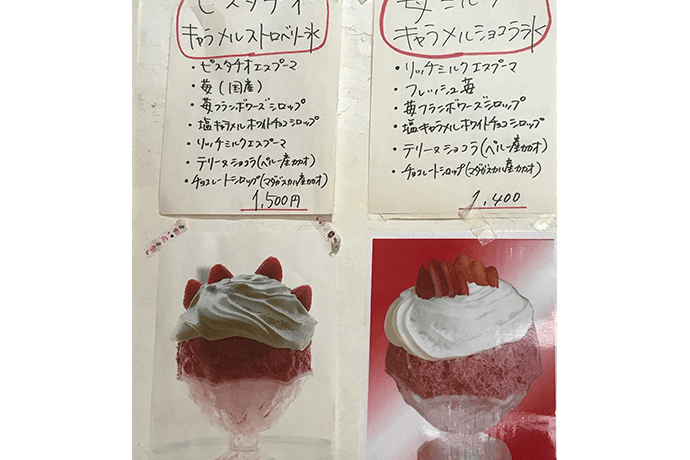 ピスタチオ
キャラメルストロベリー氷
・ピスタチオエスプーマ
・苺(国産)
・苺フランボワーズシロップ
・塩キャラメルホワイトチョコシロップ
・リッチミルクエスプーマ
・テリーヌショコラ(ペルー産カカオ)
・チョコレートシロップ(マダガスカル産カカオ)
1,500円
苺ミルク
キャラメルショコラ氷
・リッチミルクエスプーマ
・フレッシュ苺
・苺フランボワーズシロップ
・塩キャラメルホワイトチョコシロップ
・テリーヌショコラ(ペルー産カカオ)
・チョコレートシロップ(マダガスカル産カカオ)
1,400